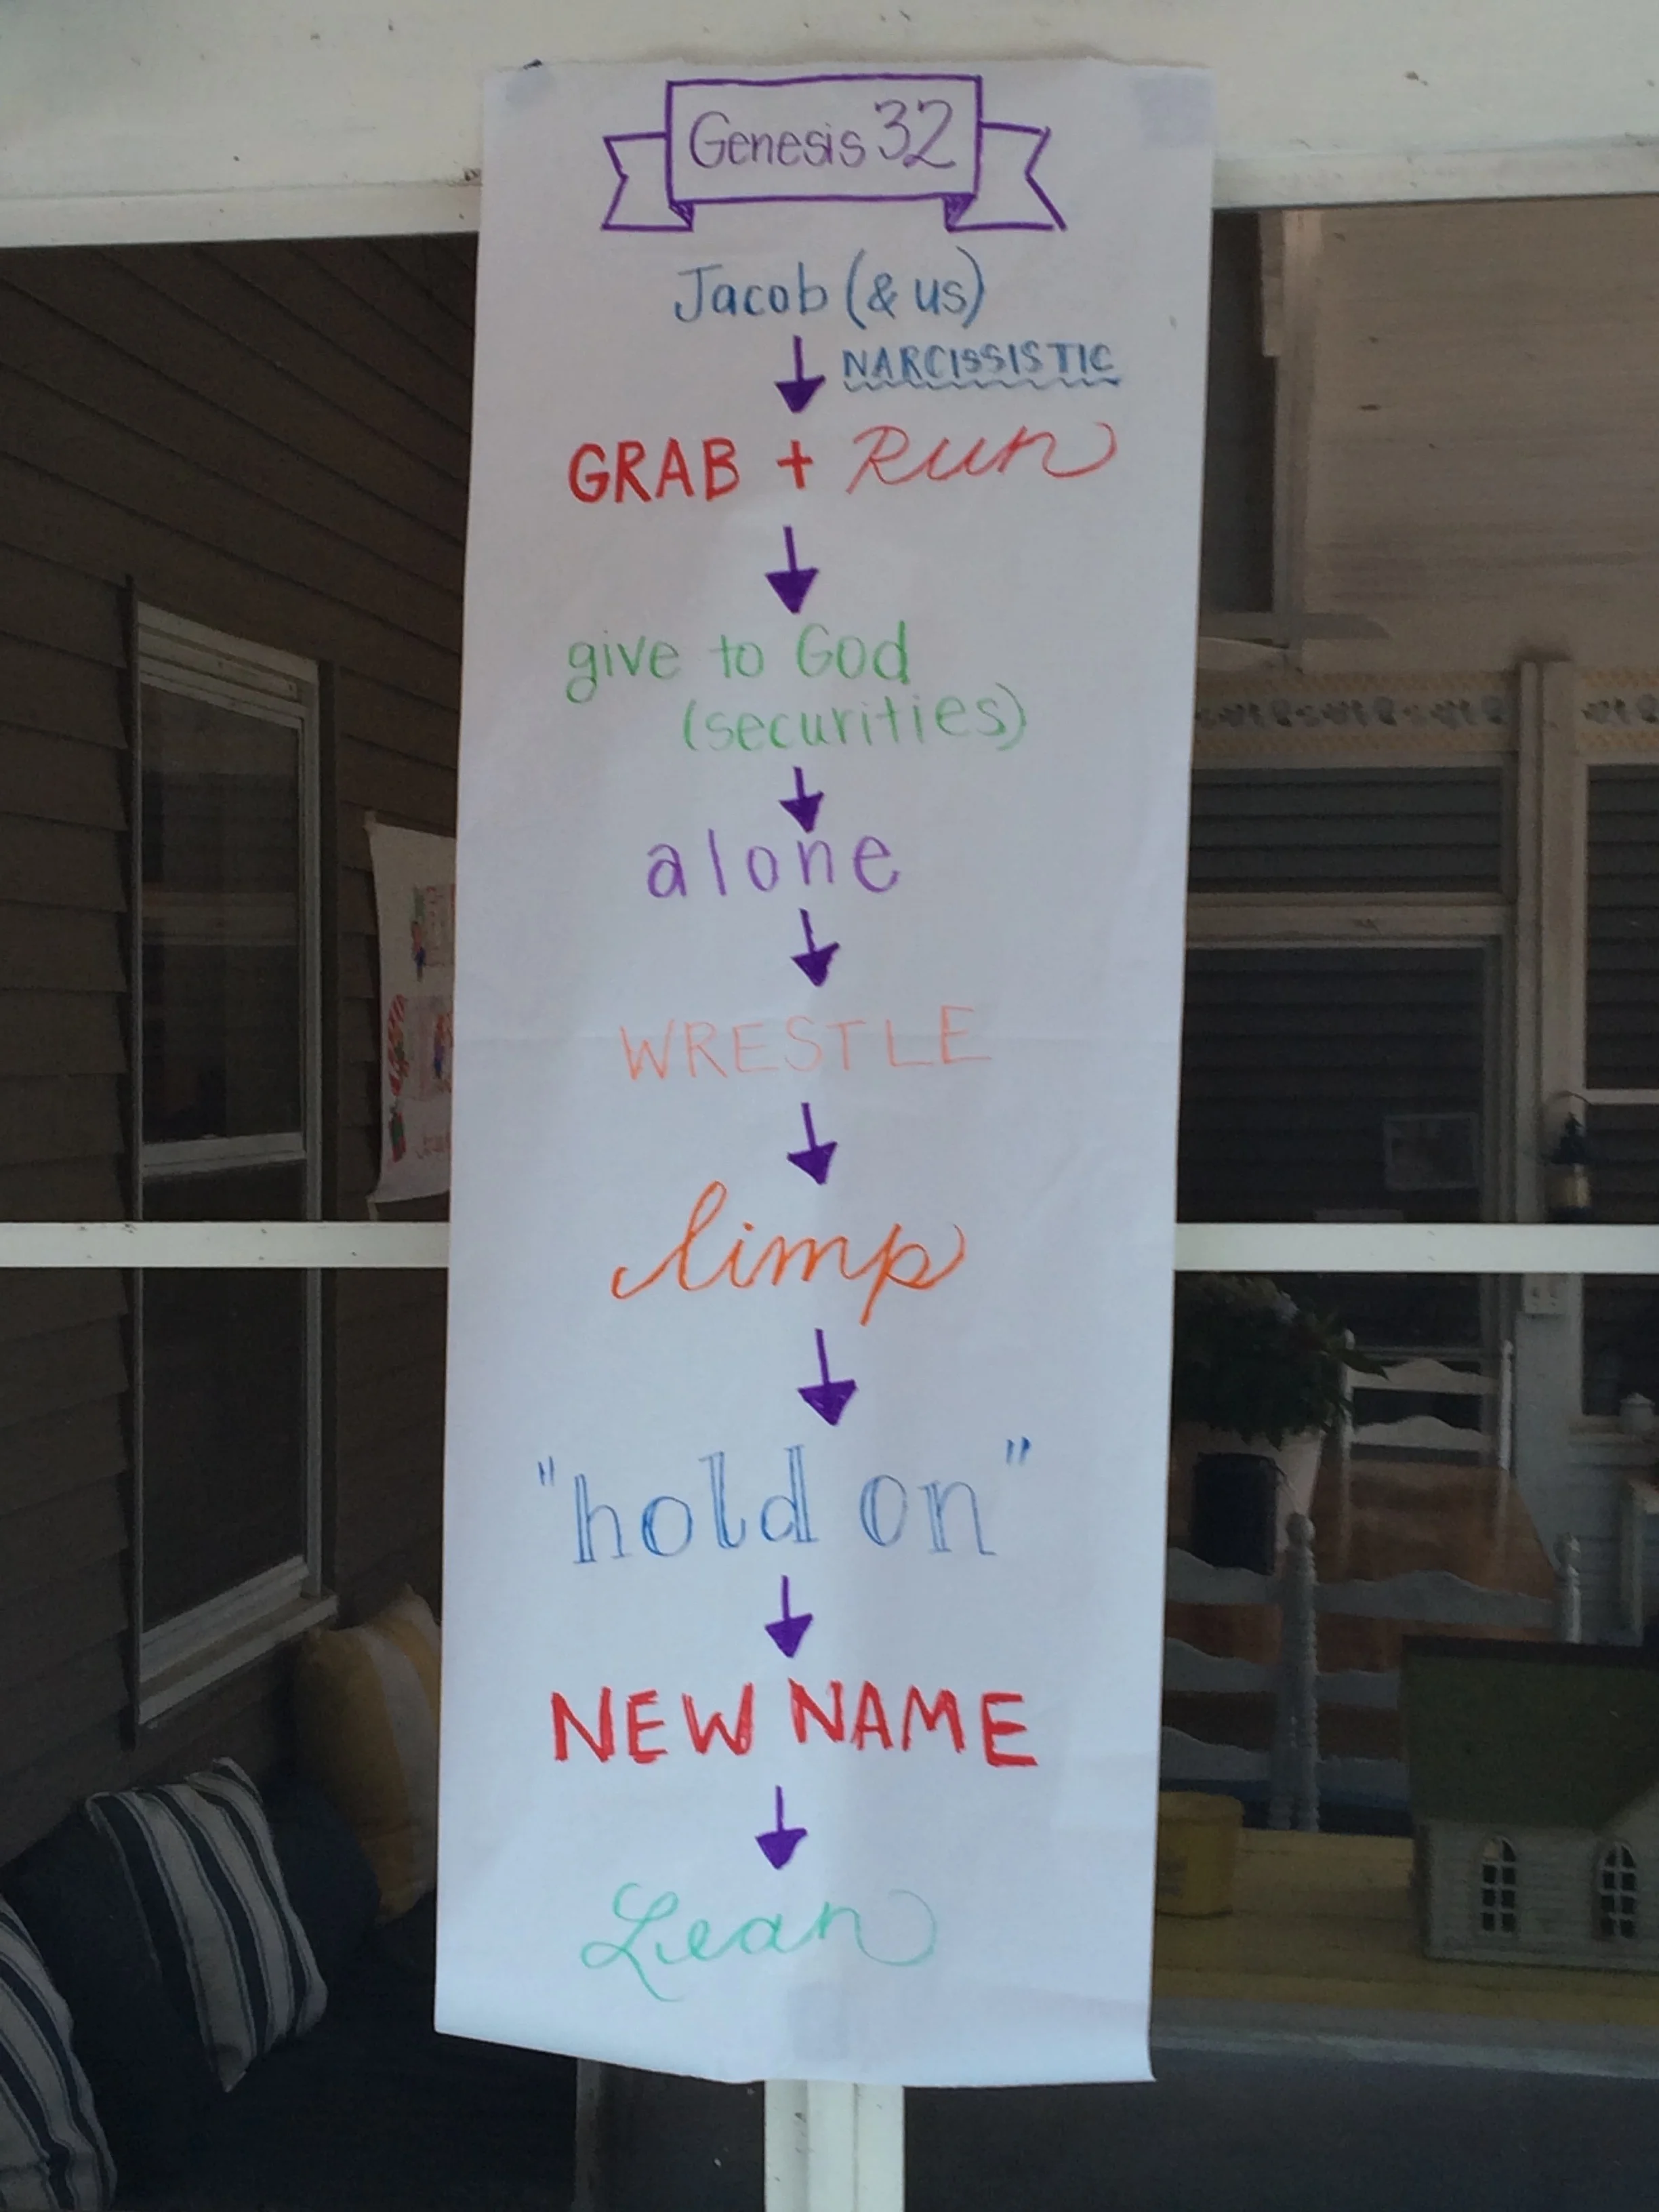 Genesis 32
Jacob (& us)
NARCISSISTIC
GRAB + Run
give to God
(securities)
alone
WRESTLE
limp
"hold on"
NEW NAME
Lean